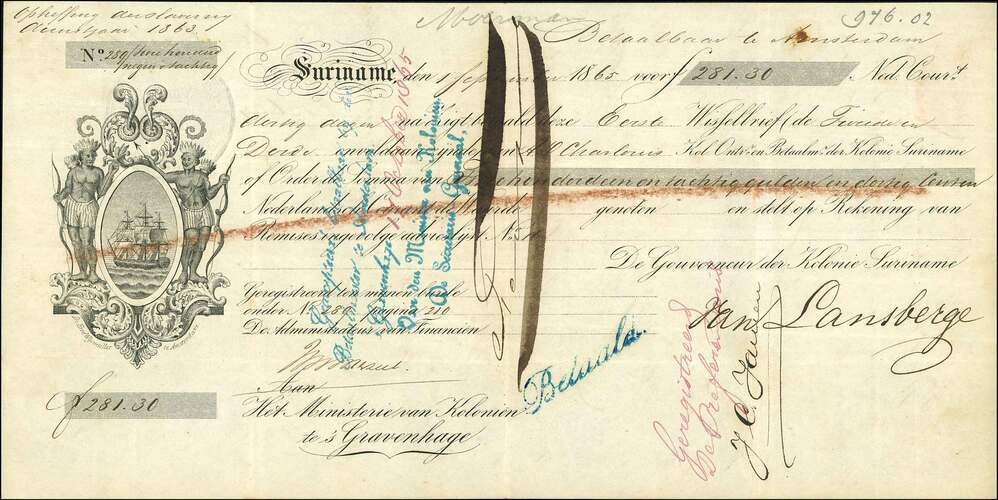 Opheffing der slaverny
dienstjaar 1863.
976.02
Betaalbaar te Amsterdam
No. 289/twee honderd
negen & tachtig
Suriname, den 1 September 1865 voor f 281.30 Ned. Cour.t
dertig dagen na zigt betaald deze Eerste Wisselbrief (de Tweede en
Derde onvoldaan zynde) aan Charlouis Kol. Ontv.r en Betaalm.r der Kolonie Suriname
of Order de Somma van Twee honderd een en tachtig gulden en dertig Centen
Nederlandsch Courant de Waarde genoten en stelt op Rekening van
Remises ingevolge adviesbrf. No. 51
De Gouverneur der Kolonie Suriname
Van Lansberge
Geregistreerd ten mynen burele
onder No. 289 pagina 210
De Administrateur van Financien
f 281.30
Aan
Het Ministerie van Kolonien
te 's Gravenhage
Geaccepteerd
Betaalbaar te Amsterdam
1865
Voor den Minister van Kolonien,
De Secretaris Generaal,
Betaald.
Geregistreerd
te Amsterdam